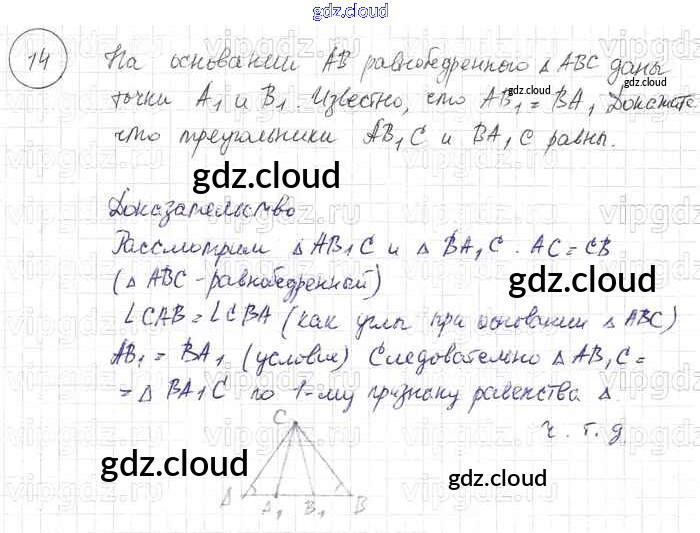 gdz.cloud
14 На основании AB равнобедренного △ ABC даны
точки A₁ и B₁. Известно, что AB₁ = BA₁ Докажите
что треугольники AB₁C и BA₁C равны.
gdz.cloud
Доказательство
Рассмотрим △ AB₁C и △ BA₁C. AC = CB
(△ ABC - равнобедренный)
gdz.cloud
∠CAB = ∠CBA (как углы при основании △ ABC)
AB₁ = BA₁ (условия) Следовательно △ AB₁C =
= △ BA₁C по 1-му признаку равенства △.
ч. т. д
C
gdz.cloud
gdz.cloud
A A₁ B₁ B